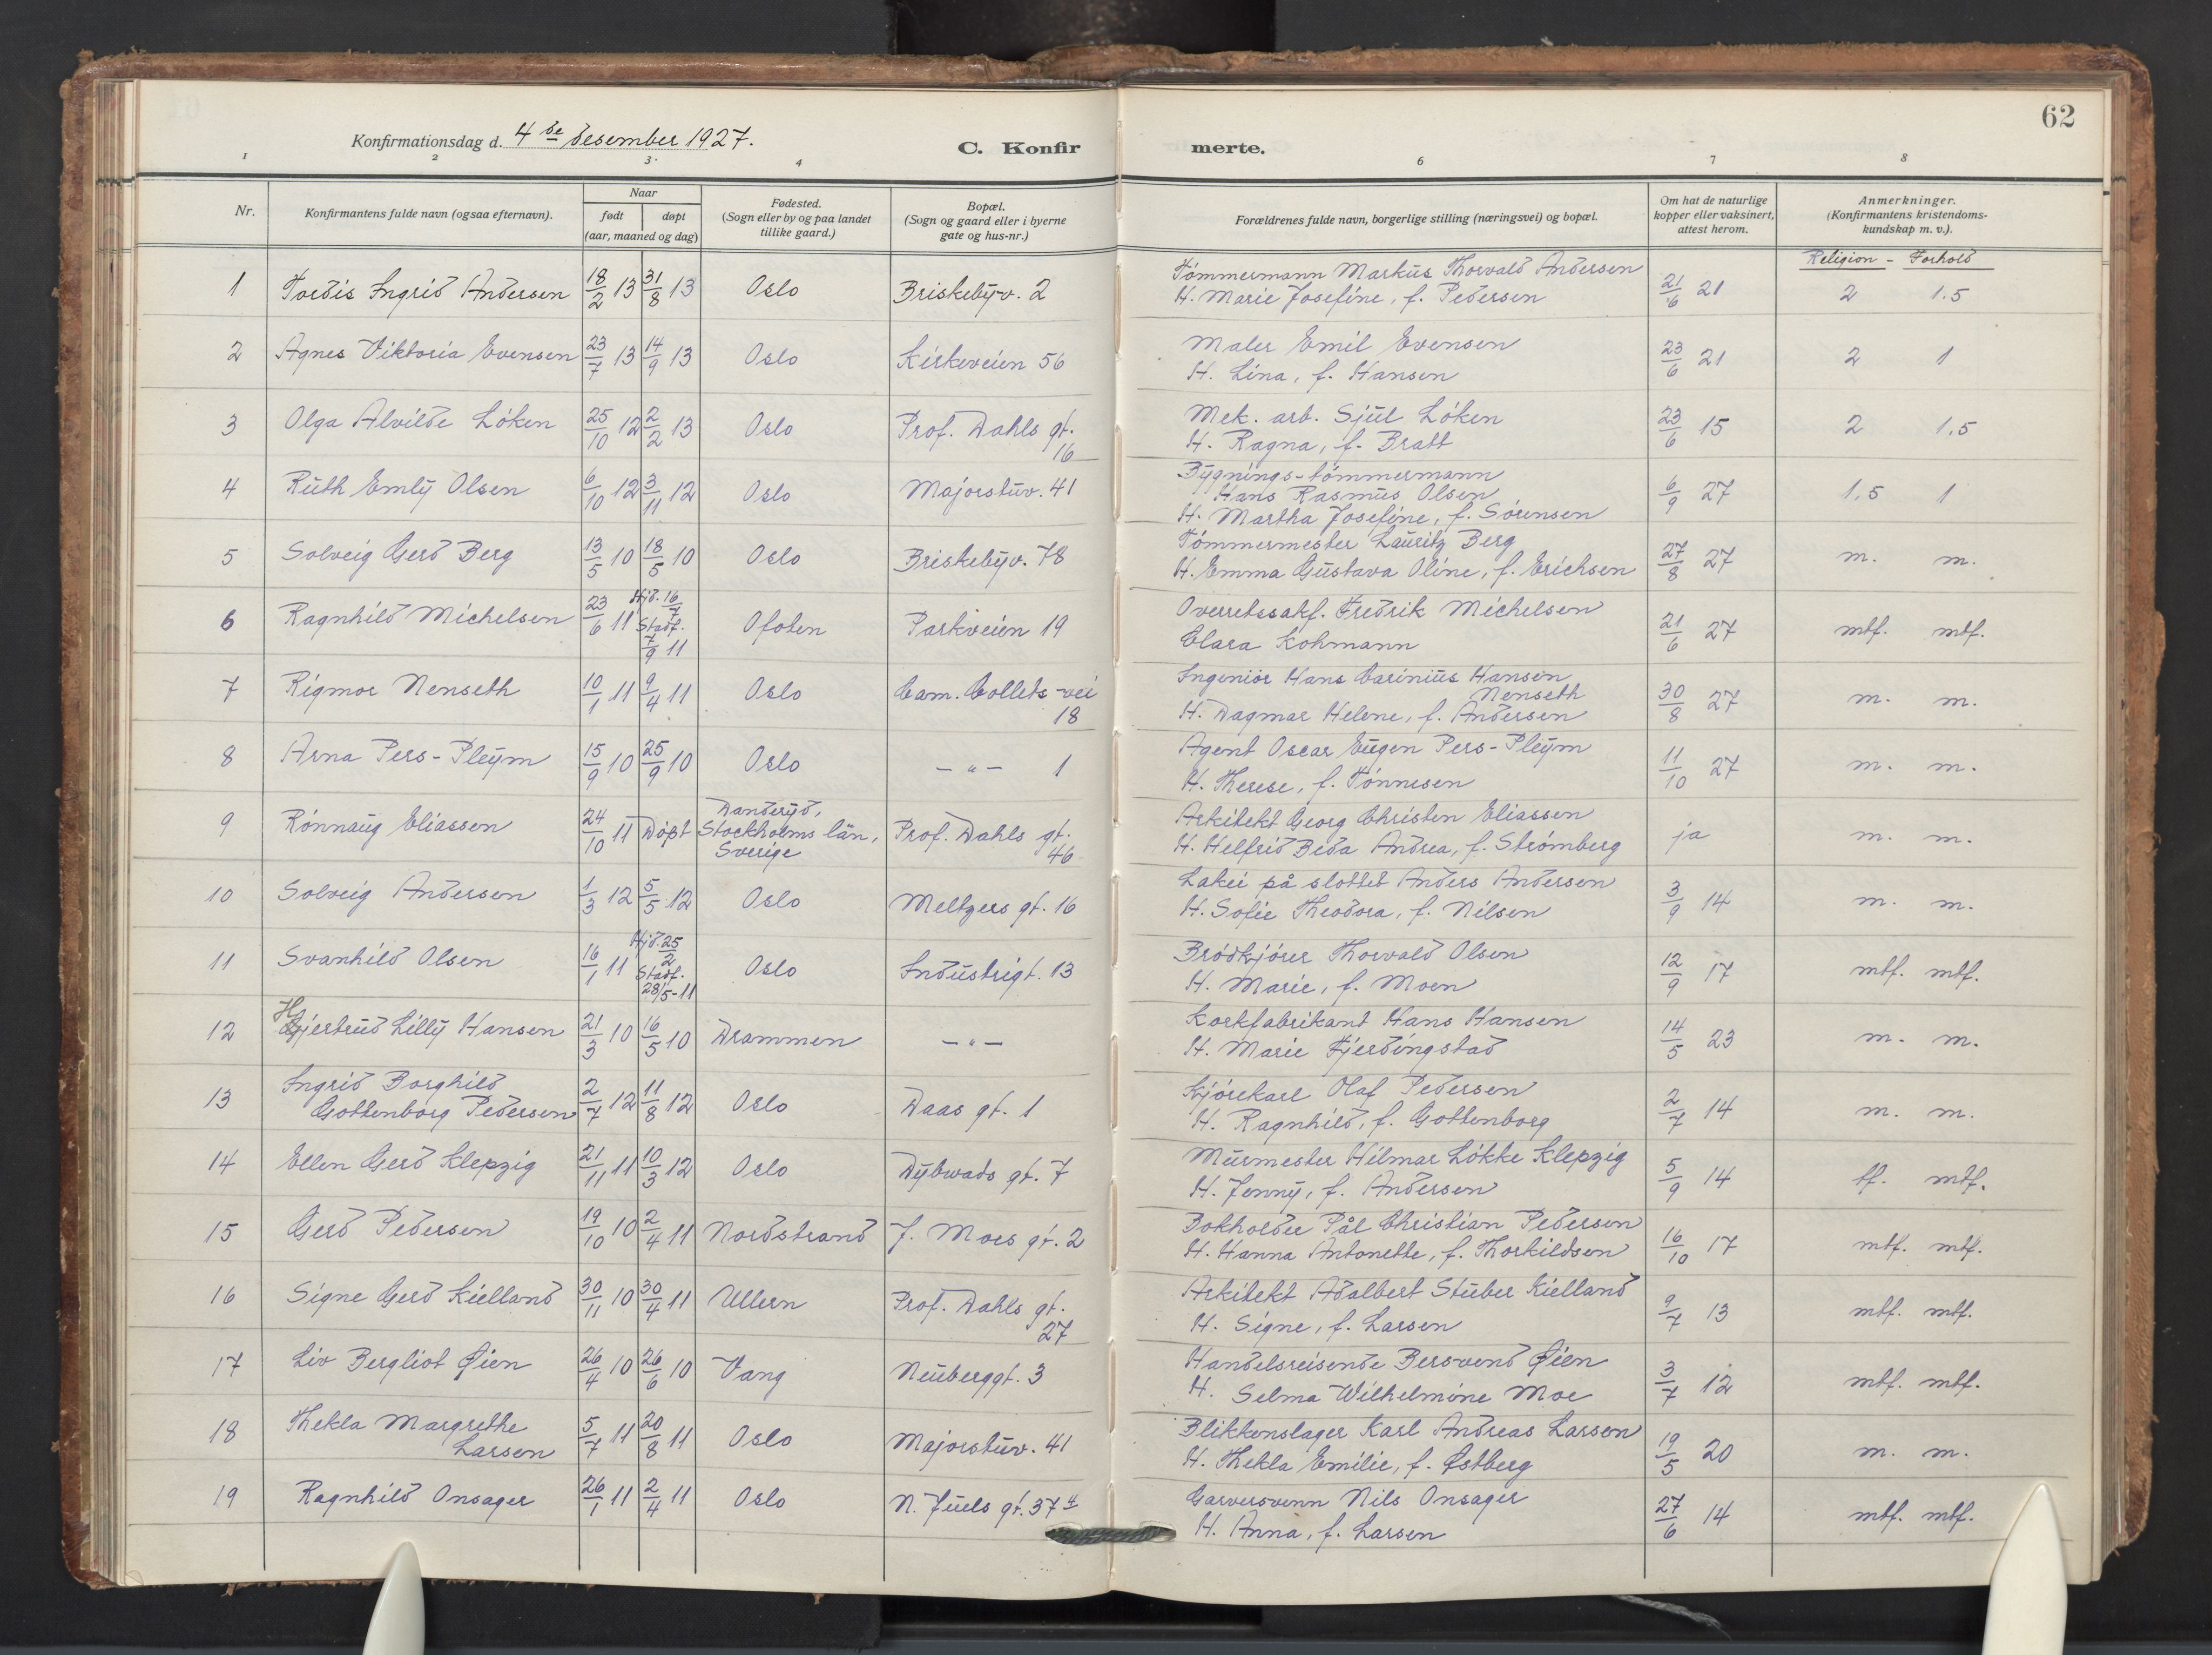 62
Konfirmationsdag d. 4de desember 1927.
C. Konfirmerte.
1 2 3 4 5 6 7 8
Nr.
Konfirmantens fulde navn (ogsaa efternavn).
Naar
født døpt
(aar, maaned og dag)
Fødested.
(Sogn eller by og paa landet
tillike gaard.)
Bopæl.
(Sogn og gaard eller i byerne
gate og hus-nr.)
Forældrenes fulde navn, borgerlige stilling (næringsvei) og bopæl.
Om hat de naturlige
kopper eller vaksinert,
attest herom.
Anmerkninger.
(Konfirmantens kristendoms-
kundskap m. v.).
Religion - Forhold
1 Tordis Ingrid Andersen 18/2 13 31/8 13 Oslo Briskebyv. 2
Tømmermann Markus Thorvald Andersen
H. Marie Josefine, f. Pedersen 21/6 21 2 1.5
2 Agnes Viktoria Evensen 23/7 13 14/9 13 Oslo Kirkeveien 56
Maler Emil Evensen
H. Lina, f. Hansen 23/6 21 2 1
3 Olga Alvilde Løken 25/10 12 2/2 13 Oslo Prof. Dahls gt.
16
Mek. arb. Sjul Løken
H. Ragna, f. Bratt 23/6 15 2 1.5
4 Ruth Emly Olsen 6/10 12 3/11 12 Oslo Majorstuv. 41
Bygnings-tømmermann
Hans Rasmus Olsen
H. Martha Josefine, f. Sørensen 6/9 27 1.5 1
5 Solveig Gerd Berg 13/5 10 18/5 10 Oslo Briskebyv. 78
Tømmermester Lauritz Berg
H. Emma Gustava Oline, f. Erichsen 27/8 27 m. m.
6 Ragnhild Michelsen 23/6 11 Hjd. 16/7
Stadf.
7/9 11 Ofoten Parkveien 19
Overretssakf. Fredrik Michelsen
Clara Kohmann 21/6 27 mtf. mtf.
7 Rigmor Nenseth 10/1 11 9/4 11 Oslo Cam. Collets-vei
18
Ingeniør Hans Carinius Hansen
Nenseth
H. Dagmar Helene, f. Andersen 30/8 27 m. m.
8 Arna Pers-Pleym 15/9 10 25/9 10 Oslo - " - 1
Agent Oscar Eugen Pers-Pleym
H. Therese, f. Tønnesen 11/10 27 m. m.
9 Rønnaug Eliassen 24/10 11 Døpt Danderyd,
Stockholms län,
Sverige
Prof. Dahls gt.
46
Arkitekt Georg Christen Eliassen
H. Helfrid Beda Andrea, f. Strømberg ja m. m.
10 Solveig Andersen 1/3 12 5/5 12 Oslo Meltzers gt. 16
Lakei på slottet Anders Andersen
H. Sofie Theodora, f. Nilsen 3/9 14 m. m.
11 Svanhild Olsen 16/1 11 Hjd. 25/2
Stadf.
28/5-11 Oslo Industrigt. 13
Brødkjører Thorvald Olsen
H. Marie, f. Moen 12/9 17 mtf. mtf.
12 Hjertrud Lilly Hansen 21/3 10 16/5 10 Drammen - " -
Korkfabrikant Hans Hansen
H. Marie Fjerdingstad 14/5 23 m. m.
13 Ingrid Borghild
Gottenborg Pedersen 2/7 12 11/8 12 Oslo Daas gt. 1
Kjørekarl Olaf Pedersen
H. Ragnhild, f. Gottenborg 2/7 14 m. m.
14 Ellen Gerd Klepzig 21/11 11 10/3 12 Oslo Dybwads gt. 7
Murmester Hilmar Løkke Klepzig
H. Jenny, f. Andersen 5/9 14 tf. mtf.
15 Gerd Pedersen 19/10 10 2/4 11 Nordstrand J. Moes gt. 2
Bokholder Pål Christian Pedersen
H. Hanna Antonette, f. Thorkildsen 16/10 17 mtf. mtf.
16 Signe Gerd Kielland 30/11 10 30/4 11 Ullern Prof. Dahls gt.
27
Arkitekt Adalbert Stuber Kielland
H. Signe, f. Larsen 9/7 13 mtf. mtf.
17 Liv Bergliot Øien 26/4 10 26/6 10 Vang Neuberggt. 3
Handelsreisende Bersvend Øien
H. Selma Wilhelmine Moe 3/7 12 mtf. mtf.
18 Thekla Margrethe
Larsen 5/7 11 20/8 11 Oslo Majorstuv. 41
Blikkenslager Karl Andreas Larsen
H. Thekla Emilie, f. Østberg 19/5 20 m. m.
19 Ragnhild Onsager 26/1 11 2/4 11 Oslo N. Juels gt. 37
Garversvenn Nils Onsager
H. Anna, f. Larsen 27/6 14 mtf. mtf.